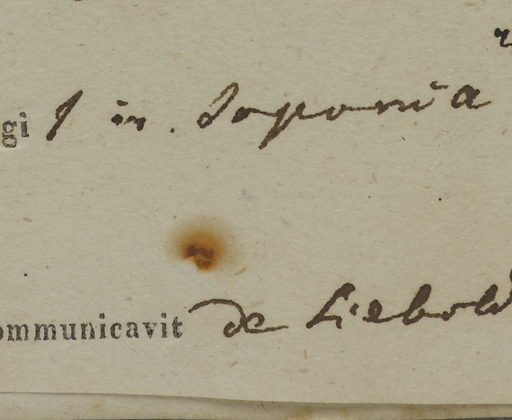 gi in Japonia
ommunicavit de Siebold